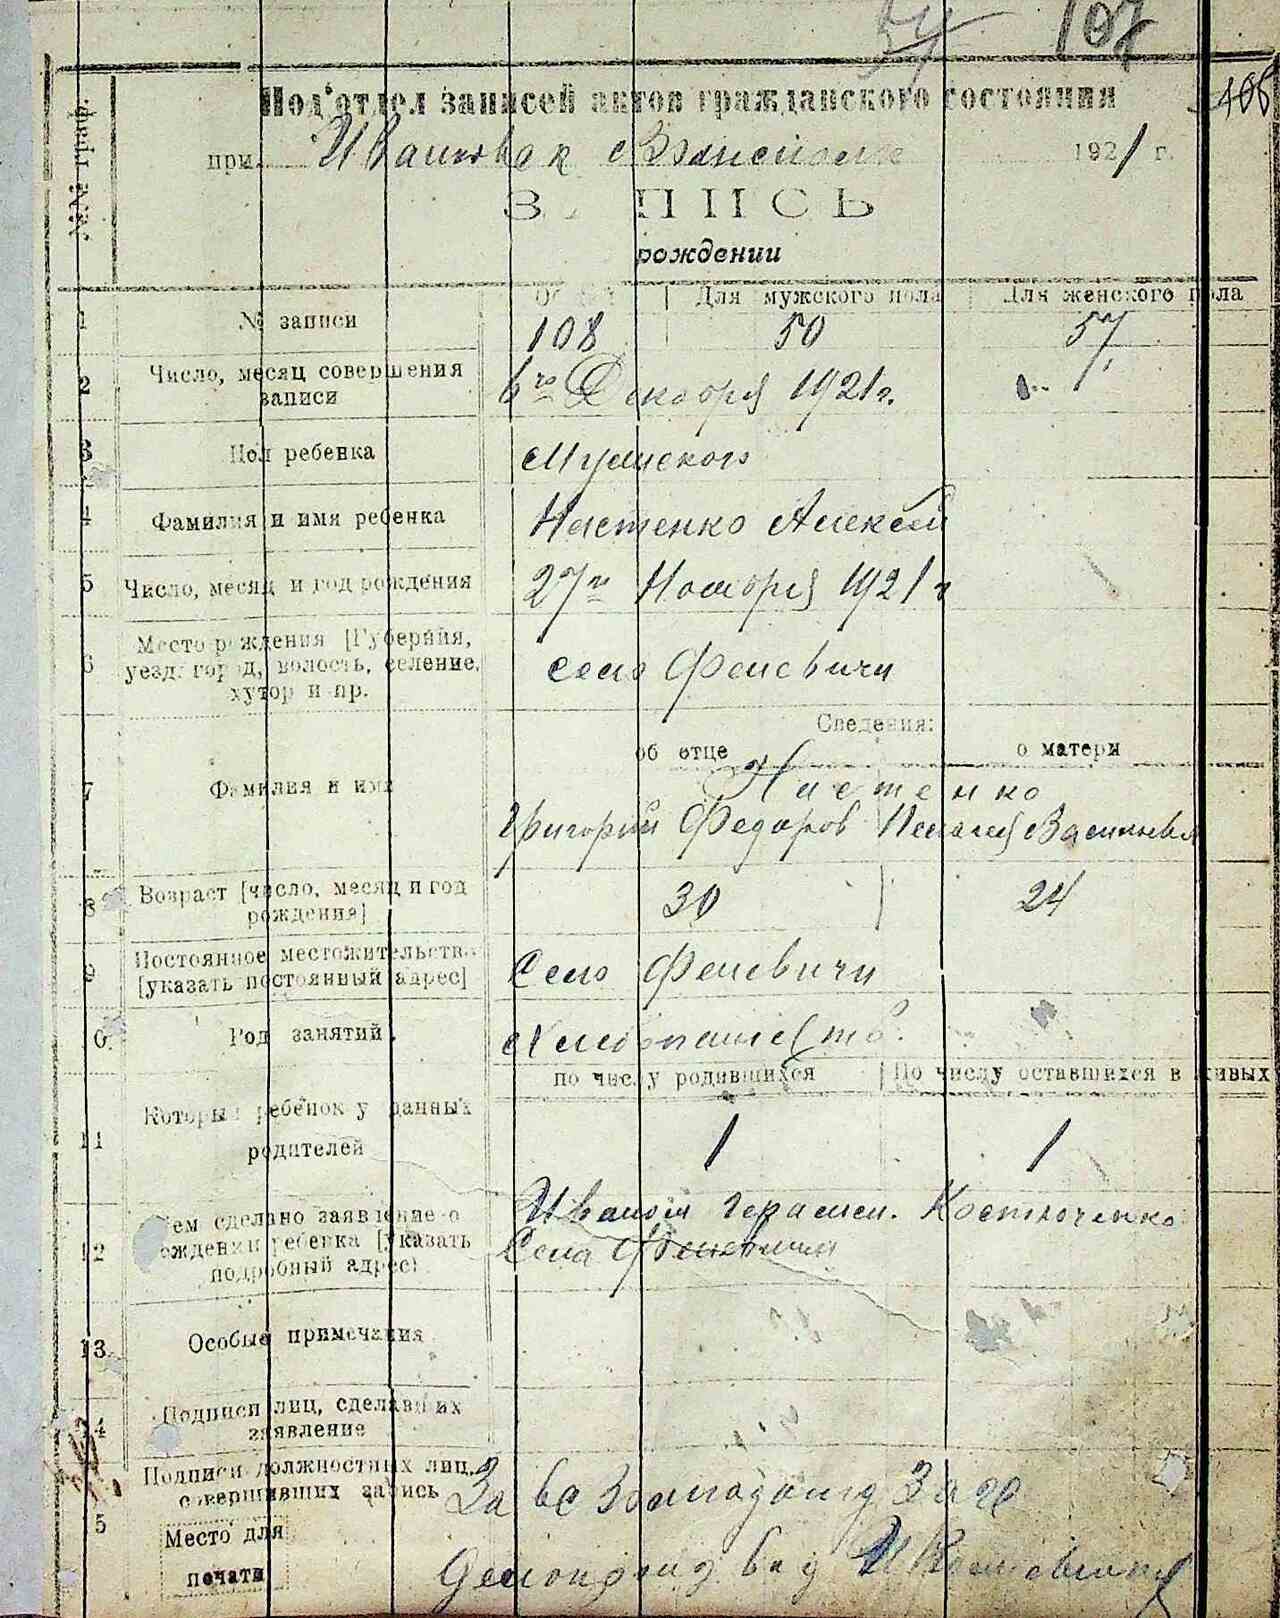 107
106
Под'отдел записей актов гражданского состояния
№№ граф.
при Ивановск 1921 г.
ЗАПИСЬ
рождении
Общий Для мужского пола Для женского пола
1 № записи 108 50 57
2 Число, месяц совершения
записи 6го Декабря 1921 г.
3 Пол ребенка Мужского
4 Фамилия и имя ребенка Настенко Алексей
5 Число, месяц и год рождения 27го Ноября 1921 г
6 Место рождения [Губерния,
уезд, город, волость, селение,
хутор и пр. Село Феневичи
Сведения:
об отце о матери
7 Фамилия и имя Настенко
Григорий Федоров Пелагея Васильева
8 Возраст [число, месяц и год
рождения] 30 24
9 Постоянное местожительство
[указать постоянный адрес] Село Феневичи
0 Род занятий. Хлебопашеств.
по числу родившихся По числу оставшихся в живых
11 Который ребенок у данных
родителей 1 1
12 Кем сделано заявление о
рождении ребенка [указать
подробный адрес] Иваном Герасим. Костюченко
Села Феневичи
13 Особые примечания
14 Подписи лиц, сделавших
заявление
Подписи должностных лиц,
совершивших запись За
5 Место для
печати